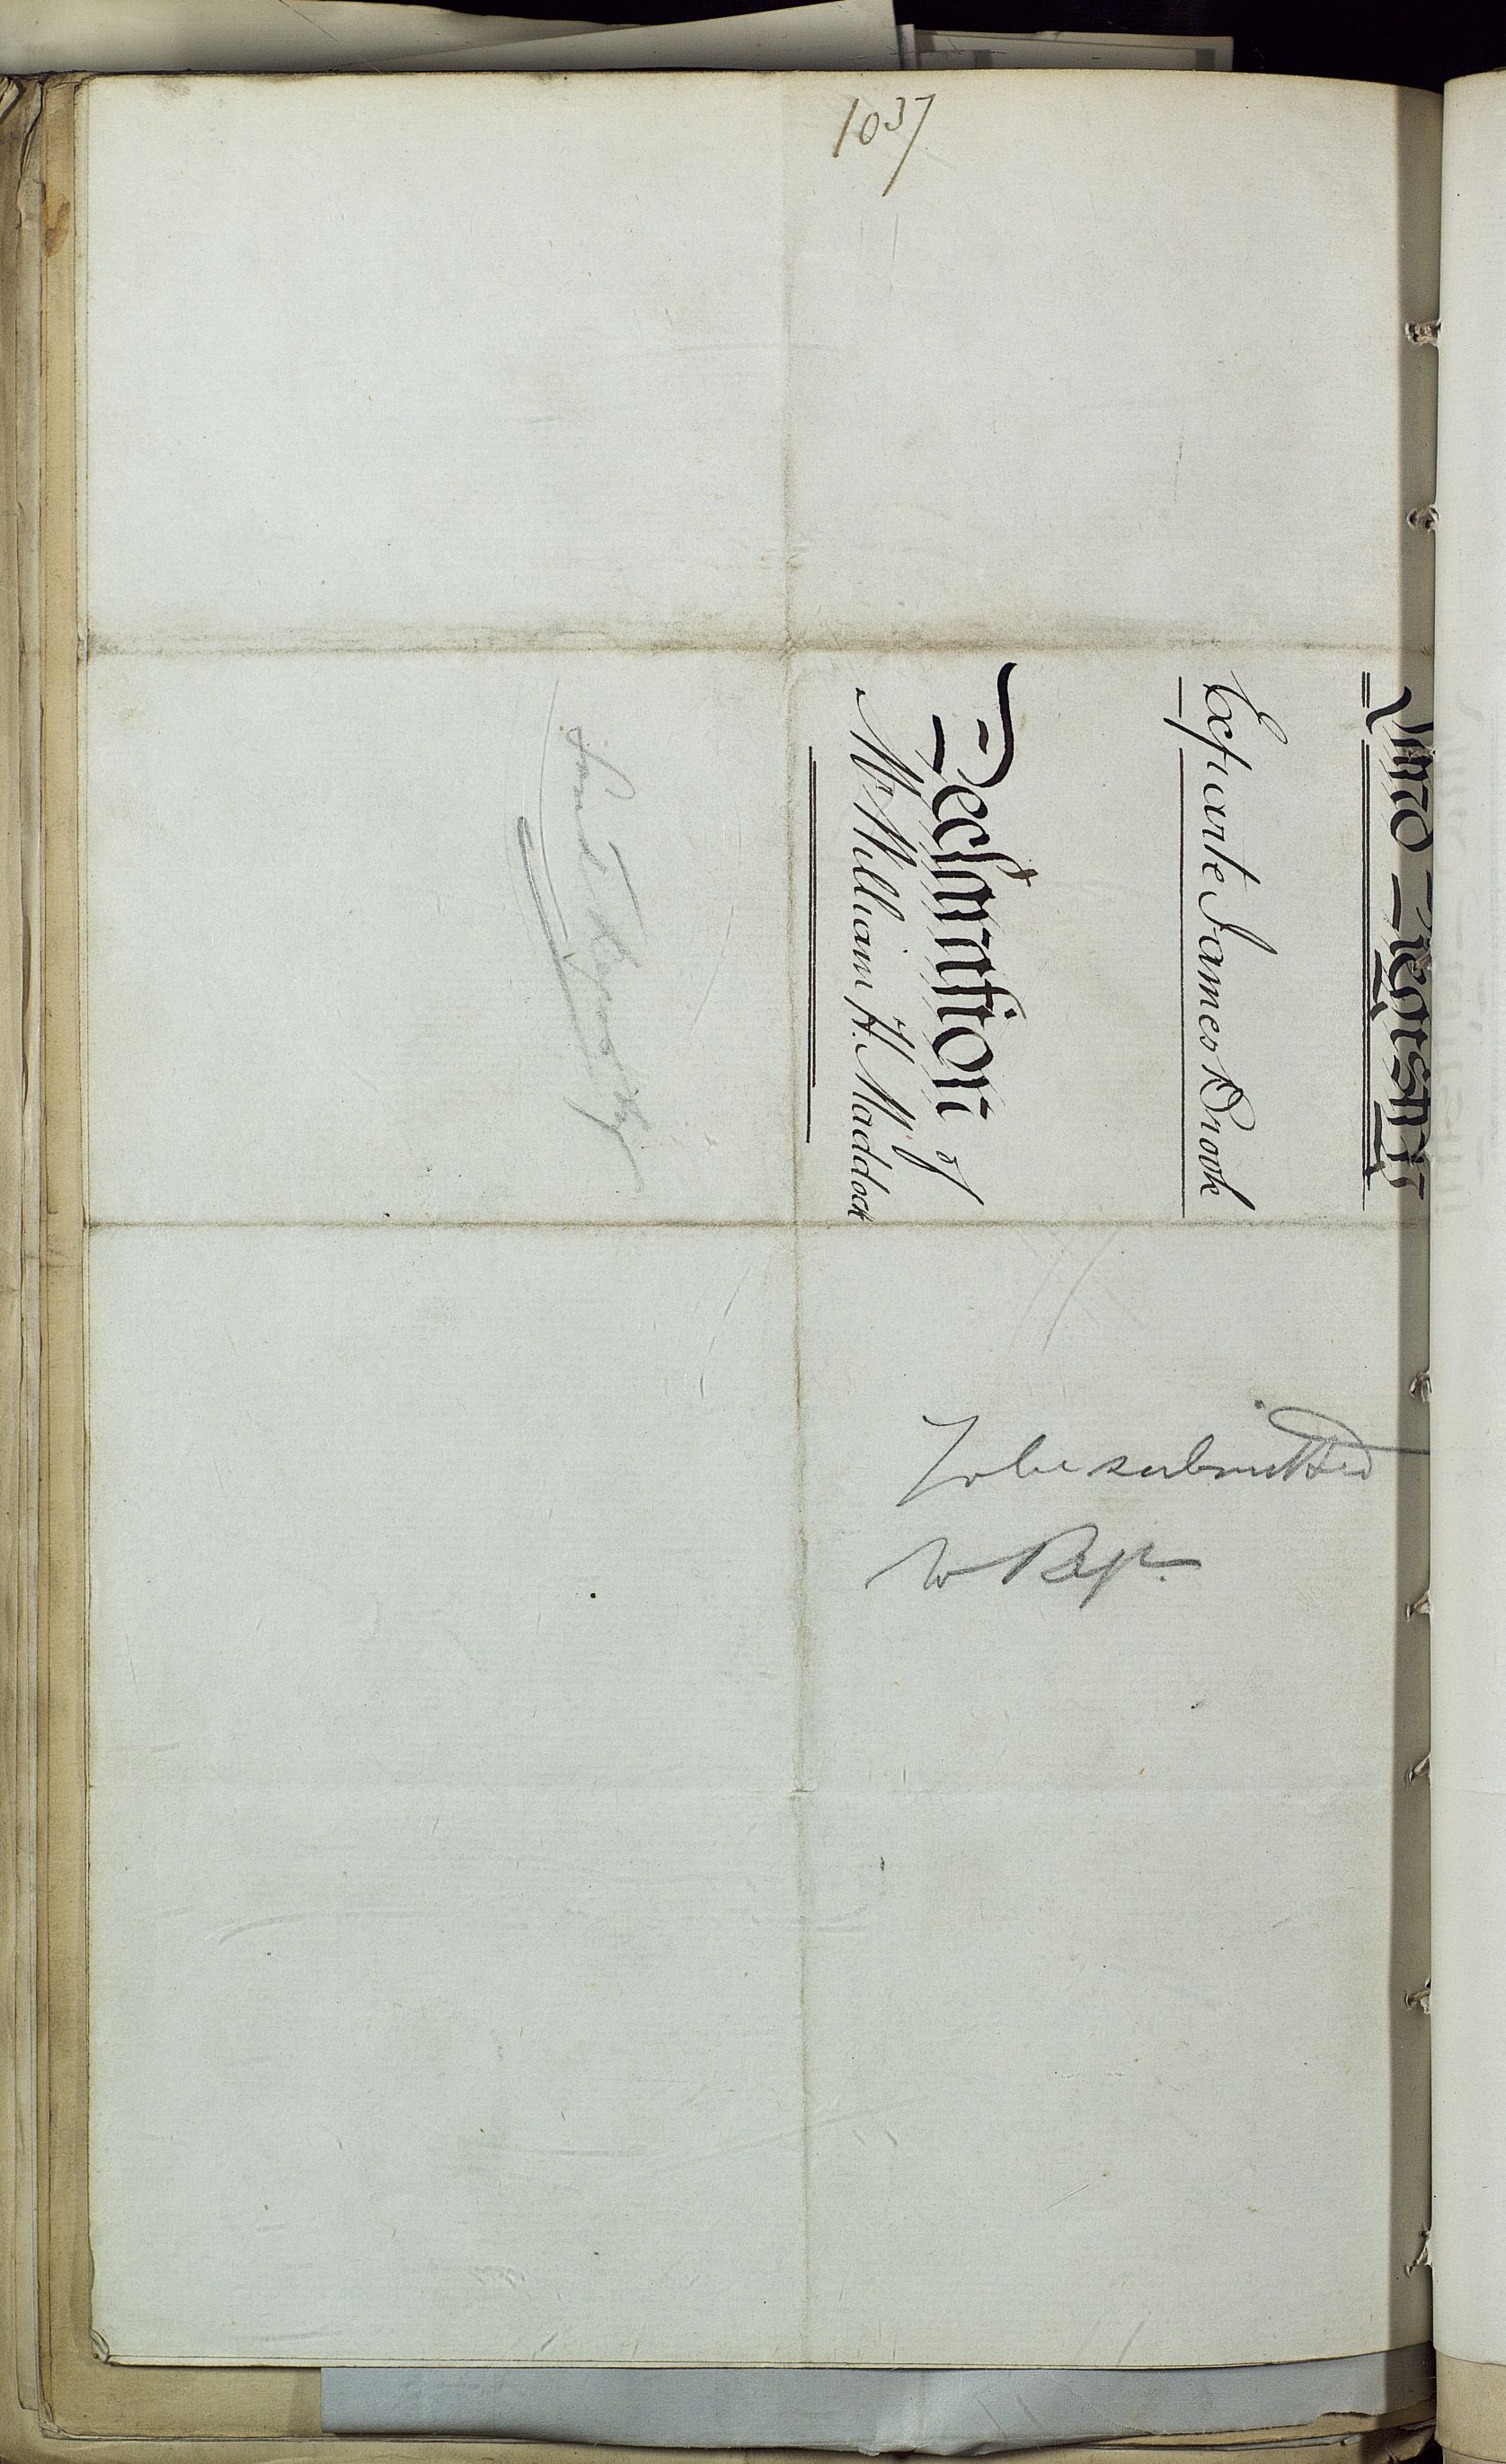 1037
Land Registry
Exparte James Brook
Declaration of
Mr William H. Maddock
Land Registry
To be submitted
to Regr.